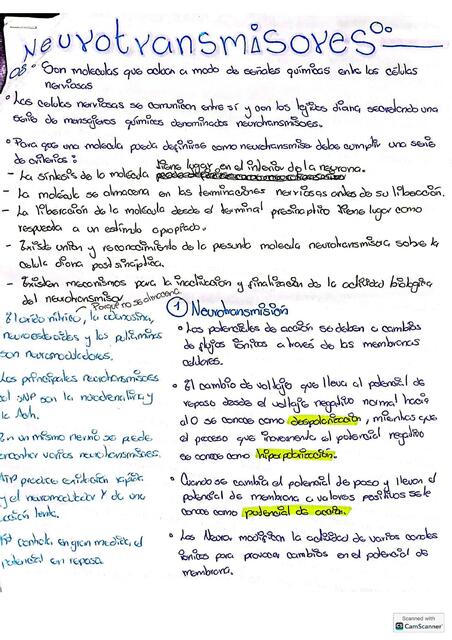 Neurotransmisores
DEF: Son moleculas que actuan a modo de señales químicas entre las células
nerviosas
• Las celulas nerviosas se comunican entre sí y con los tejidos diana secretando una
serie de mensajeros químicos denominados neurotransmisores.
• Para que una molecula pueda definirse como neurotransmisor debe cumplir una serie
de criterios:
- La síntesis de la molecula tiene lugar en el interior de la neurona.
- La molecula se almacena en las terminaciones nerviosas antes de su liberación.
- La liberación de la molecula desde el terminal presinaptico tiene lugar como
respuesta a un estimulo apropiado.
- Existe union y reconocimiento de la presunta molecula neurotransmisora sobre la
celula diana postsinaptica.
- Existen mecanismos para la inactivacion y finalización de la actividad biologica
del neurotransmisor
Porque no se almacena
El oxido nítrico, la adenosina,
neuroesteroides y las poliaminas
son neuromoduladores.
Los principales neurotransmisores
del SNP son la noradrenalina y
la Ach.
En un mismo nervio se puede
encontrar varios neurotransmisores.
ATP produce excitación rapida
y el neuromodulador Y da una
acción lenta.
K+ controla, en gran medida, el
potencial en reposo.
1 Neurotransmisión
• Los potenciales de acción se deben a cambios
de flujos iónicos a través de las membranas
celulares.
• El cambio de voltaje que lleva al potencial de
reposo desde el voltaje negativo normal hacia
el 0 se conoce como despolarización, mientras que
el proceso que incrementa el potencial negativo
se conoce como hiperpolarización.
• Cuando se cambia el potencial de paso y llevan el
potencial de membrana a valores positivos se le
conoce como potencial de acción.
• Los Neurot modifican la actividad de varios canales
iónicos para provocar cambios en el potencial de
membrana.
Scanned with
CamScanner